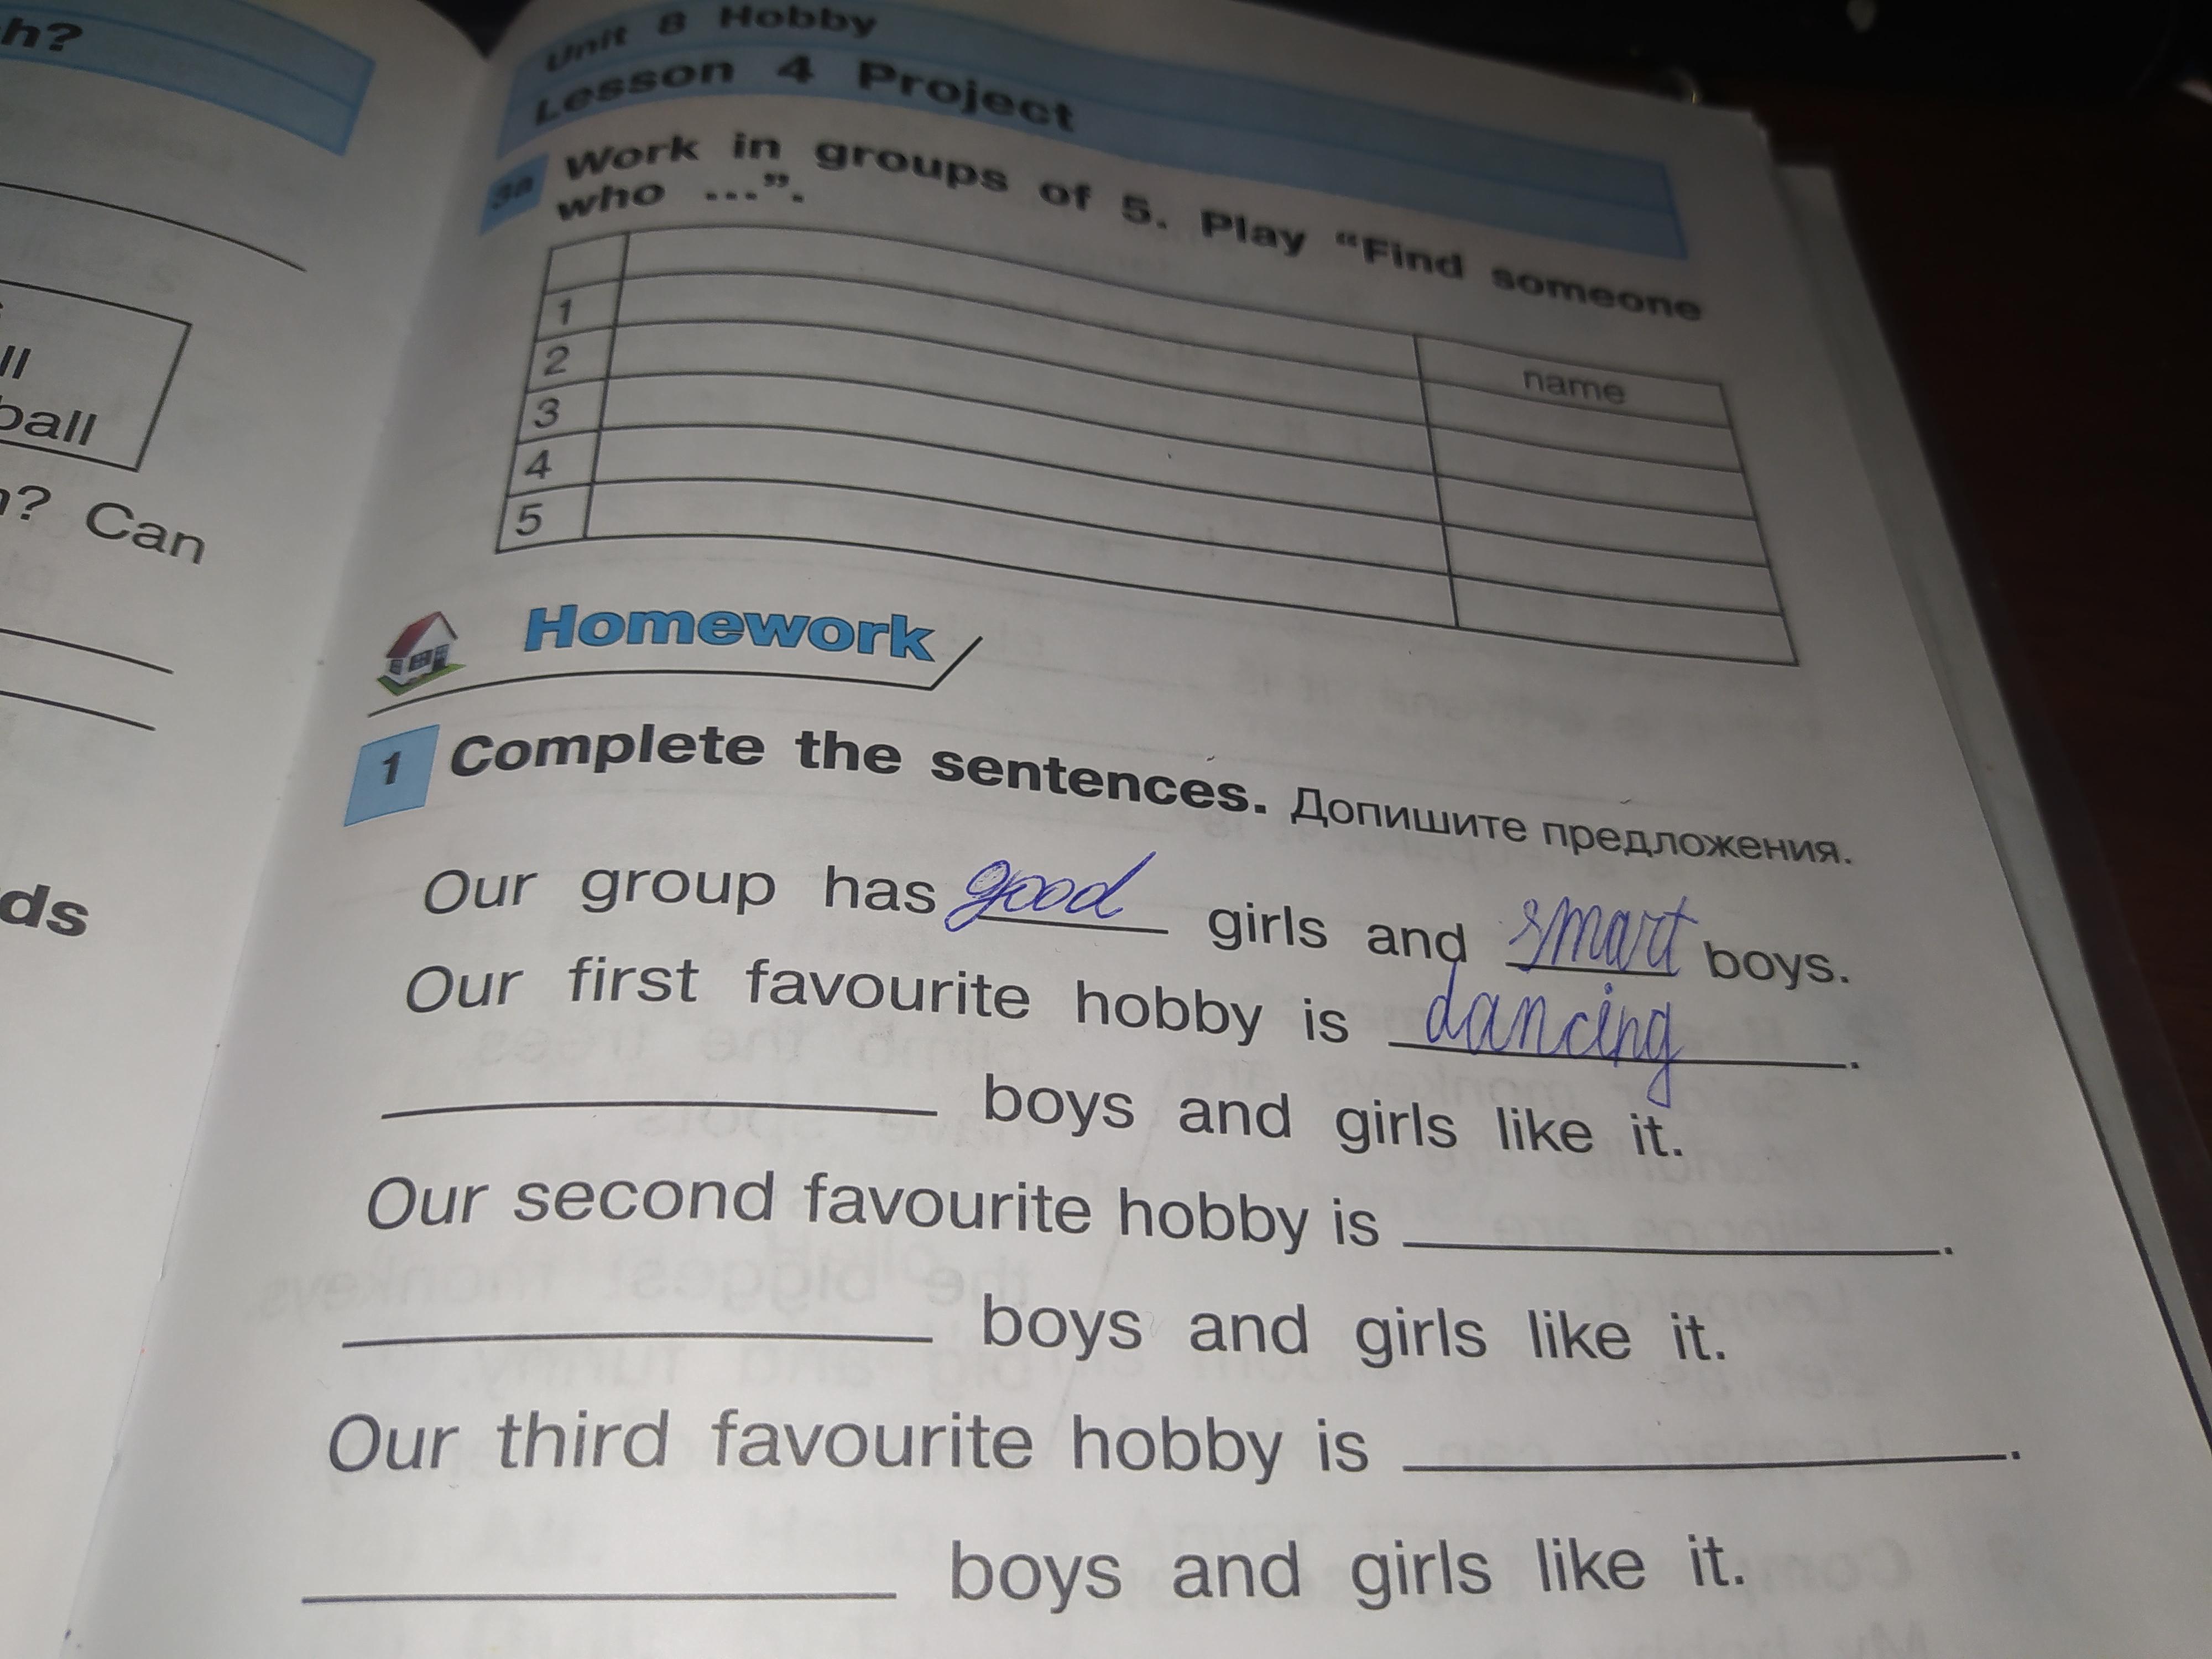 h?
ll
ball
? Can
ds
Unit 8 Hobby
Lesson 4 Project
3a Work in groups of 5. Play “Find someone
who ...”.
name
1
2
3
4
5
Homework
1 Complete the sentences. Допишите предложения.
Our group has good girls and smart boys.
Our first favourite hobby is dancing.
boys and girls like it.
Our second favourite hobby is .
boys and girls like it.
Our third favourite hobby is .
boys and girls like it.